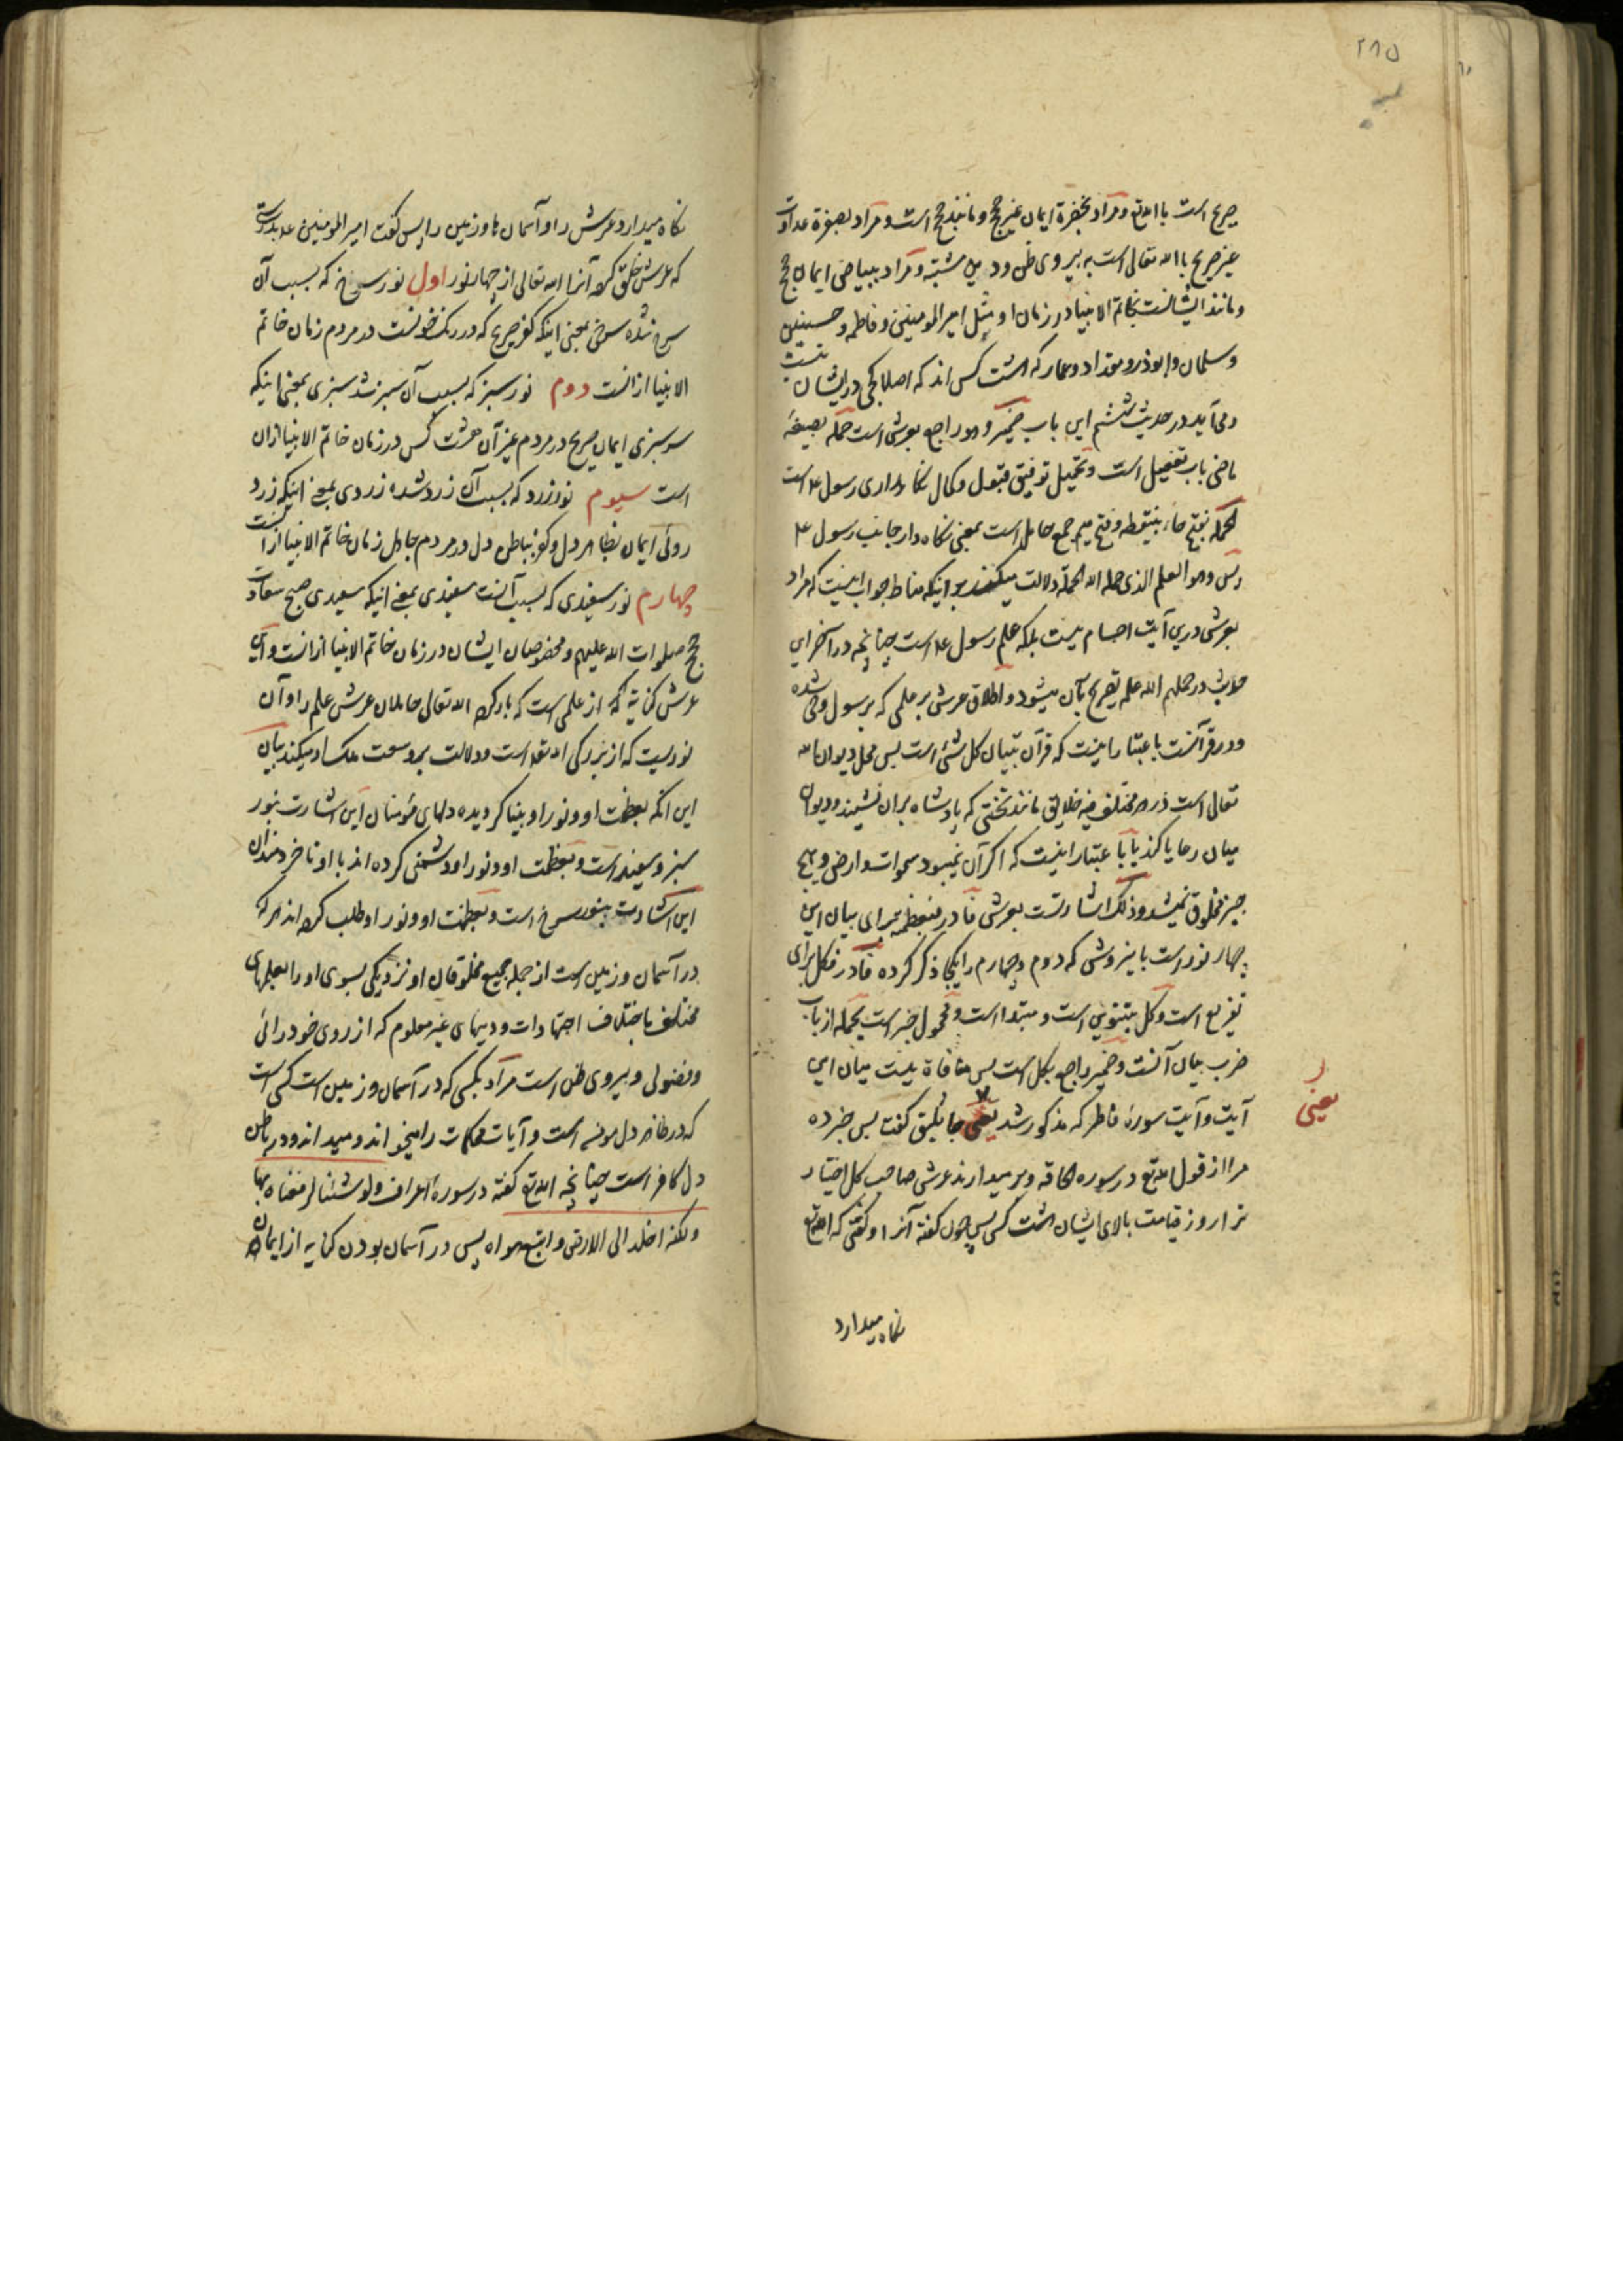 ۲۸۵
صریح است با الله تع و مراد بخضرة ایمان غیر حجج و مانند حجج است و مراد بصفرة عداوت
غیر صریح با الله تعالی است به پیروی ظن و دیل مشتبه و مراد ببیاض ایمان حجج
و مانند ایشانست بخاتم الانبیا در زمان او مثل امیرالمومنین و فاطمه و حسنین
و سلمان و ابوذر و مقداد و عمار که هشت کس اند که اصلا کجی در ایشان نیست
و می‌آید در حدیث ششم این باب ضمیر و هو راجع بعرش است حمله بصیغهٔ
ماضی باب تفعیل است و تحمیل توفیق قبول و کمال نگاهداری رسول ع است
الحملة بفتح حاء بینقطه و فتح میم جمع حامل است بمعنی نگاه دار جانب رسول ع
پس و هو العلم الذی حمله الله الحملة دلالت میکند بر اینکه مناط جواب اینست که مراد
بعرش درین آیت اجسام نیست بلکه علم رسول ع است چنانچه در آخر این
حدیث در حملهم الله علمه تصریح بآن میشود و اطلاق عرش بر علمی که بر رسول وحی شده
و در قرآنست باعتبار اینست که قرآن تبیان کل شیء است پس محل دیوان الله
تعالی است در هر مختلف فیه خلایق مانند تختی که پادشاه بران نشیند و دیوان
میان رعایا کند یا باعتبار اینست که اگر آن نمیبود سموات و ارض و هیچ
چیز مخلوق نمیشد و ذلک اشارتست بعرش فا در فبعظمته برای بیان این
چهار نور است باینروش که دوم و چهارم را یکجا ذکر کرده فا در فکل برای
تفریع است و کل بتنوین است و مبتدا است و محمول خبر است یحمله از باب
ضرب بیان آنست و ضمیر راجع بکل است پس منافاة نیست میان این
آیت و آیت سورهٔ فاطر که مذکور شد یعنی جاثلیق گفت پس خبر ده
یعنی
مرا از قول الله تع در سوره الحاقه و برمیدارند عرش صاحب کل اختیار
ترا روز قیامت بالای ایشان هشت کس پس چون گفته آنرا و گفتی که الله تع
نگاه میدارد
نگاه میدارد عرش را و آسمان ها و زمین را پس گفت امیرالمومنین ع بدرستی
که عرش خلق کرده آنرا الله تعالی از چهار نور اول نور سرخ که بسبب آن
سرخ شده سرخی بمعنی اینکه کفر صریح که در رنگ خونست در مردم زمان خاتم
الانبیا ازانست دوم نور سبز که بسبب آن سبز شد سبزی بمعنی اینکه
سرسبزی ایمان صریح در مردم غیر آن هشت کس در زمان خاتم الانبیا ازان
است سیوم نور زرد که بسبب آن زرد شده زردی بمعنی اینکه زرد
روئی ایمان بظاهر دل و کفر بباطن دل در مردم جاهل زمان خاتم الانبیا ازانست
چهارم نور سفیدی که بسبب آنست سفیدی بمعنی اینکه سفیدی صبح سعادت
حجج صلوات الله علیهم و مخصوصان ایشان در زمان خاتم الانبیا ازانست و این
عرش کنایة از علمی است که بار کرده الله تعالی حاملان عرش علم را و آن
نوریست که از بزرگی الله تع است و دلالت بر وسعت ملک او میکند بیان
این آنکه بعظمت او و نور او بینا گردیده دلهای مؤمنان این اشارت بنور
سبز و سفید است و بعظمت او و نور او دشمنی کرده اند با او ناخردمندان
این اشارت بنور سرخ است و بعظمت او و نور او طلب کرده اند هر که
در آسمان و زمین است از جمله جمیع مخلوقان او نزدیکی بسوی او را بعملهای
مختلف باختلاف اجتهادات و دینهای غیر معلوم که از روی خودرائی
و فضولی و پیروی ظن است مراد بکسی که در آسمان و زمین است کسی است
که در ظاهر دل مومن است و آیات محکمات را میخواند و میداند و در باطن
دل کافر است چنانچه الله تع گفته در سوره اعراف ولو شئنا لرفعناه بها
ولکنه اخلد الی الارض و اتبع هواه پس در آسمان بودن کنایه از ایمان